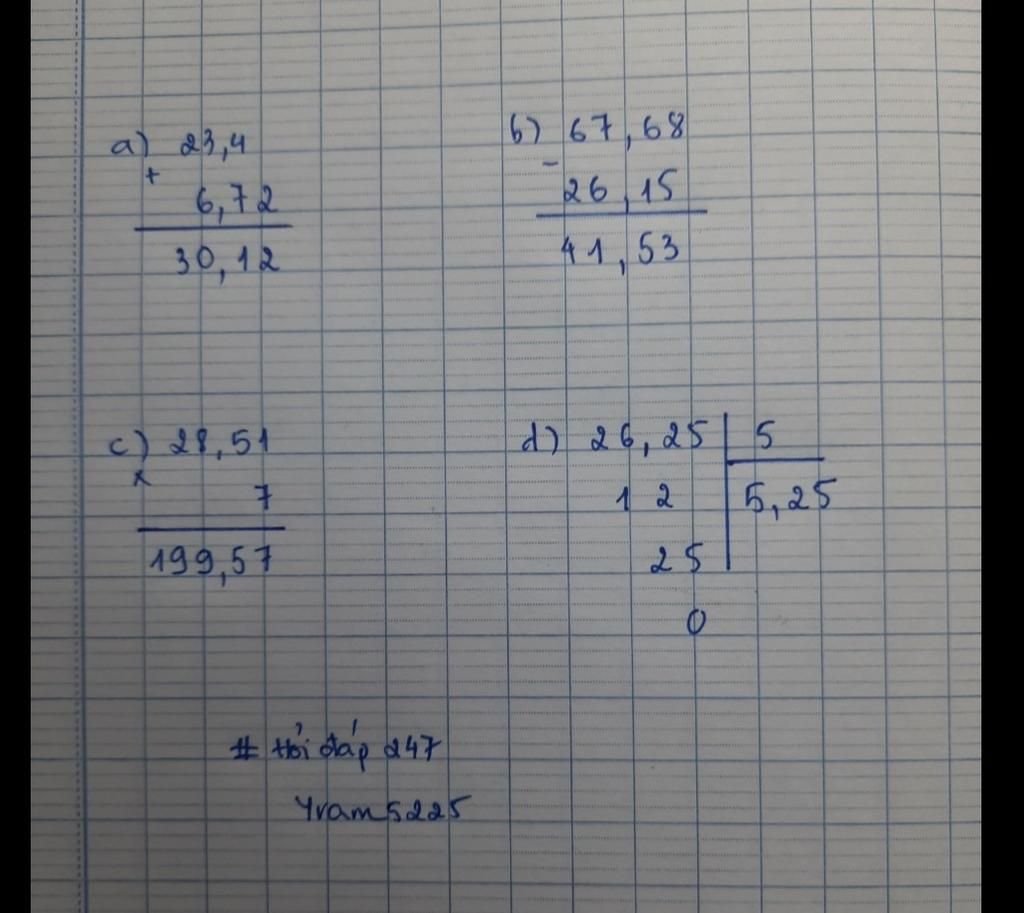 a) 23,4
+
6,72
30,12
b) 67,68
-
26,15
41,53
c) 28,51
x
7
199,57
d) 26,25 5
1 2 5,25
25
0
# Hỏi đáp 247
Yram5225